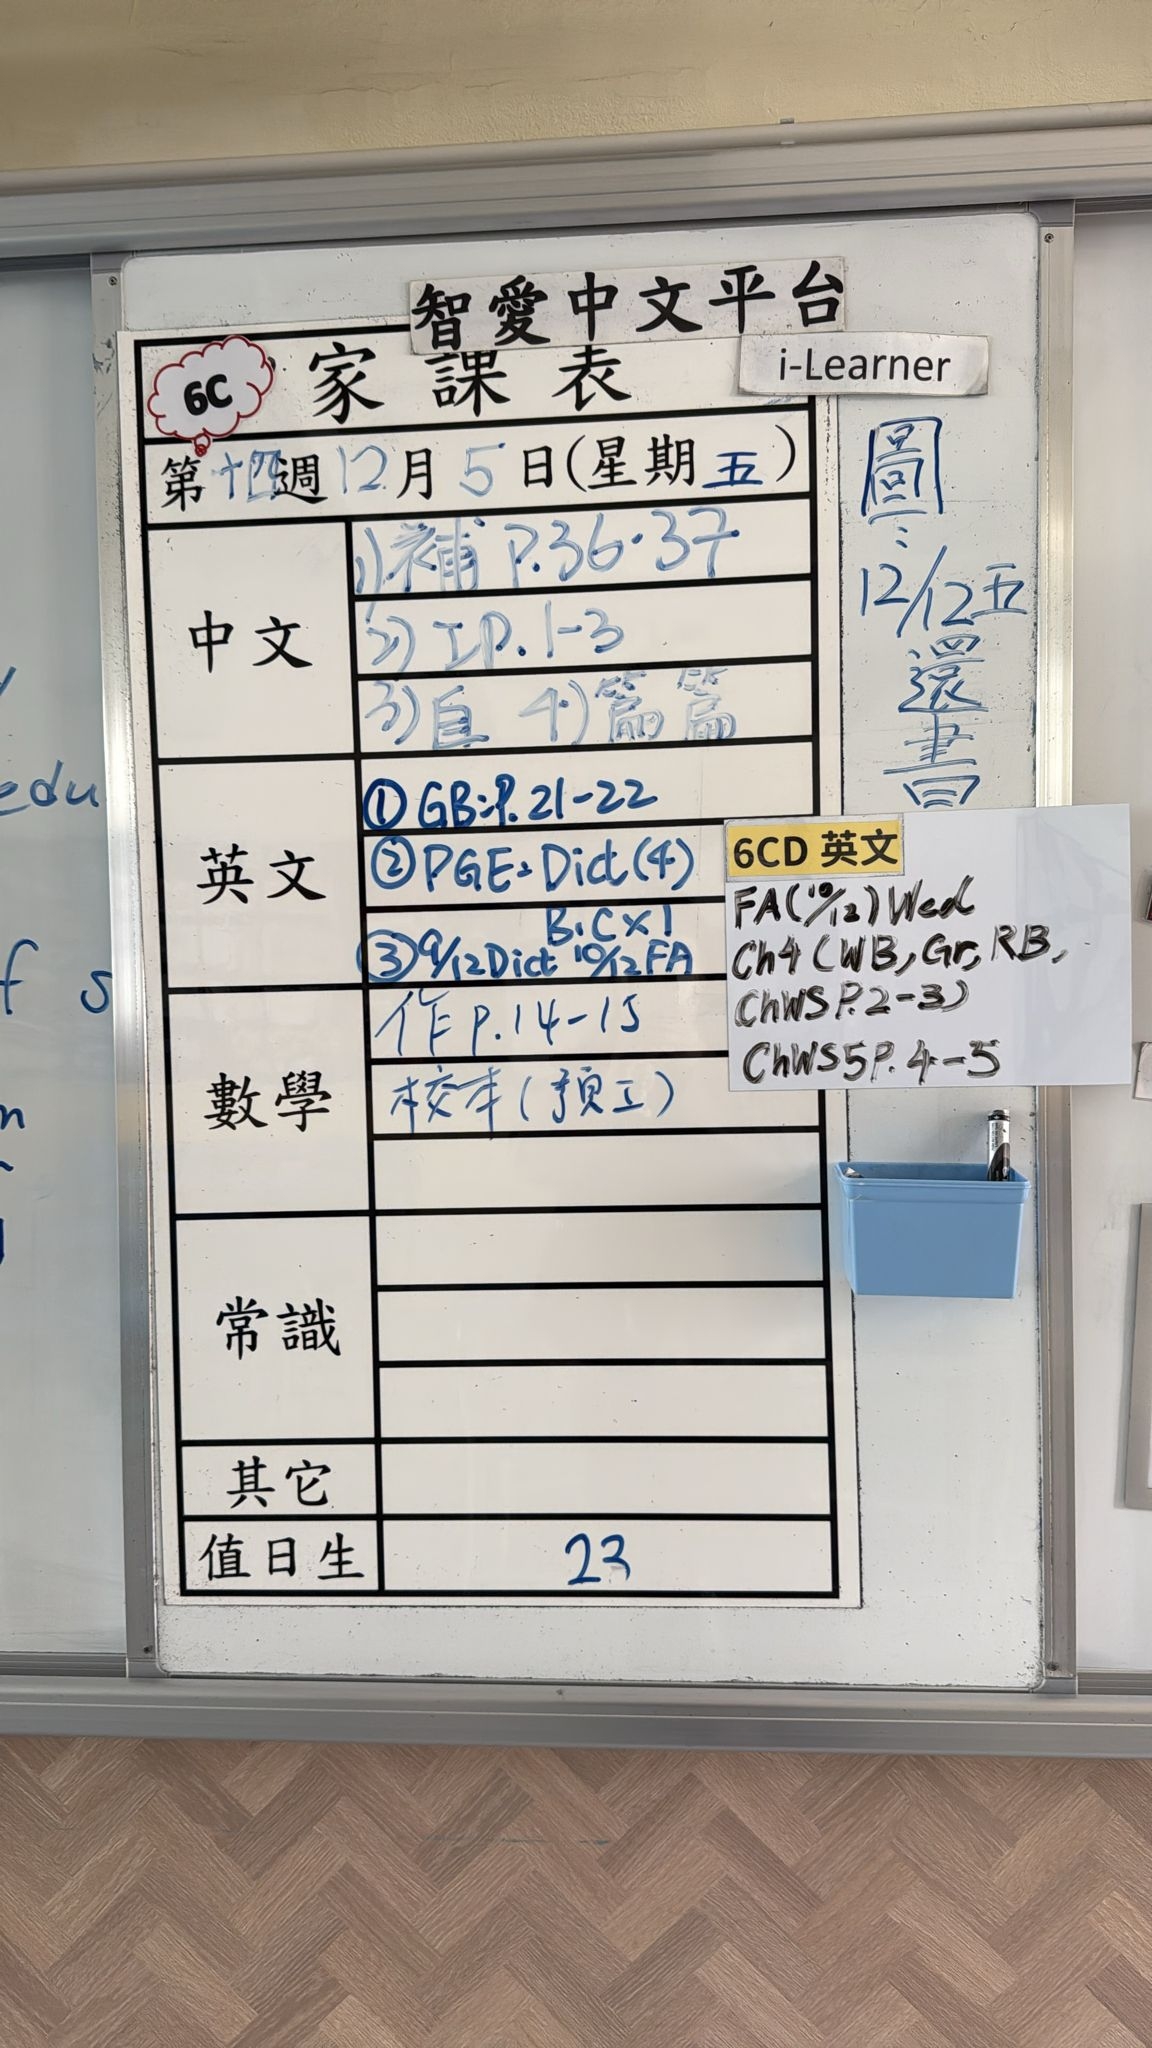 智愛中文平台
i-Learner
6C 家課表
第十四週12月5日(星期五)
中文
1)補 P.36·37
2) I P.1-3
3)自 4)篇篇
英文
① GB:P.21-22
② PGE:Dict(4)
B.C×1
③9/12Dict 10/12FA
數學
作 P.14-15
校本(預工)
常識
其它
值日生
23
圖:
12/12五
還
書
6CD 英文
FA(10/12) Wed
Ch4 (WB, Gr, RB,
ChWS P.2-3)
ChWS5P.4-5
edu
f s